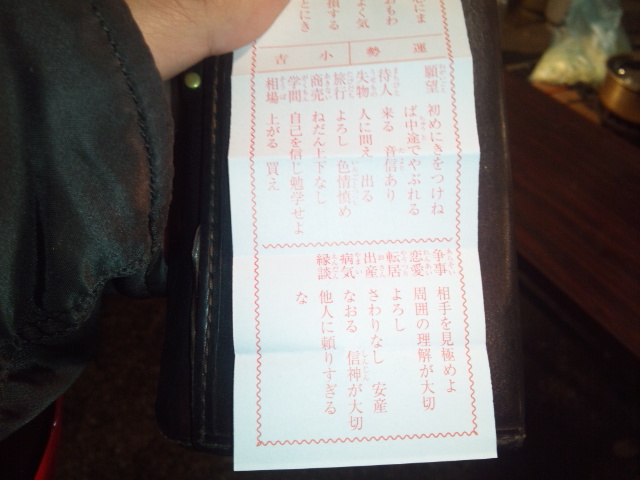 にま
おもわ
よく気
損する
とにき
運勢 小吉
願望 初めにきをつけね
ば中途でやぶれる
待人 来る 音信あり
失物 人に問え 出る
旅行 よろし 色情慎め
商売 ねだん上下なし
学問 自己を信じ勉学せよ
相場 上がる 買え
争事 相手を見極めよ
恋愛 周囲の理解が大切
転居 よろし
出産 さわりなし 安産
病気 なおる 信神が大切
縁談 他人に頼りすぎる
な